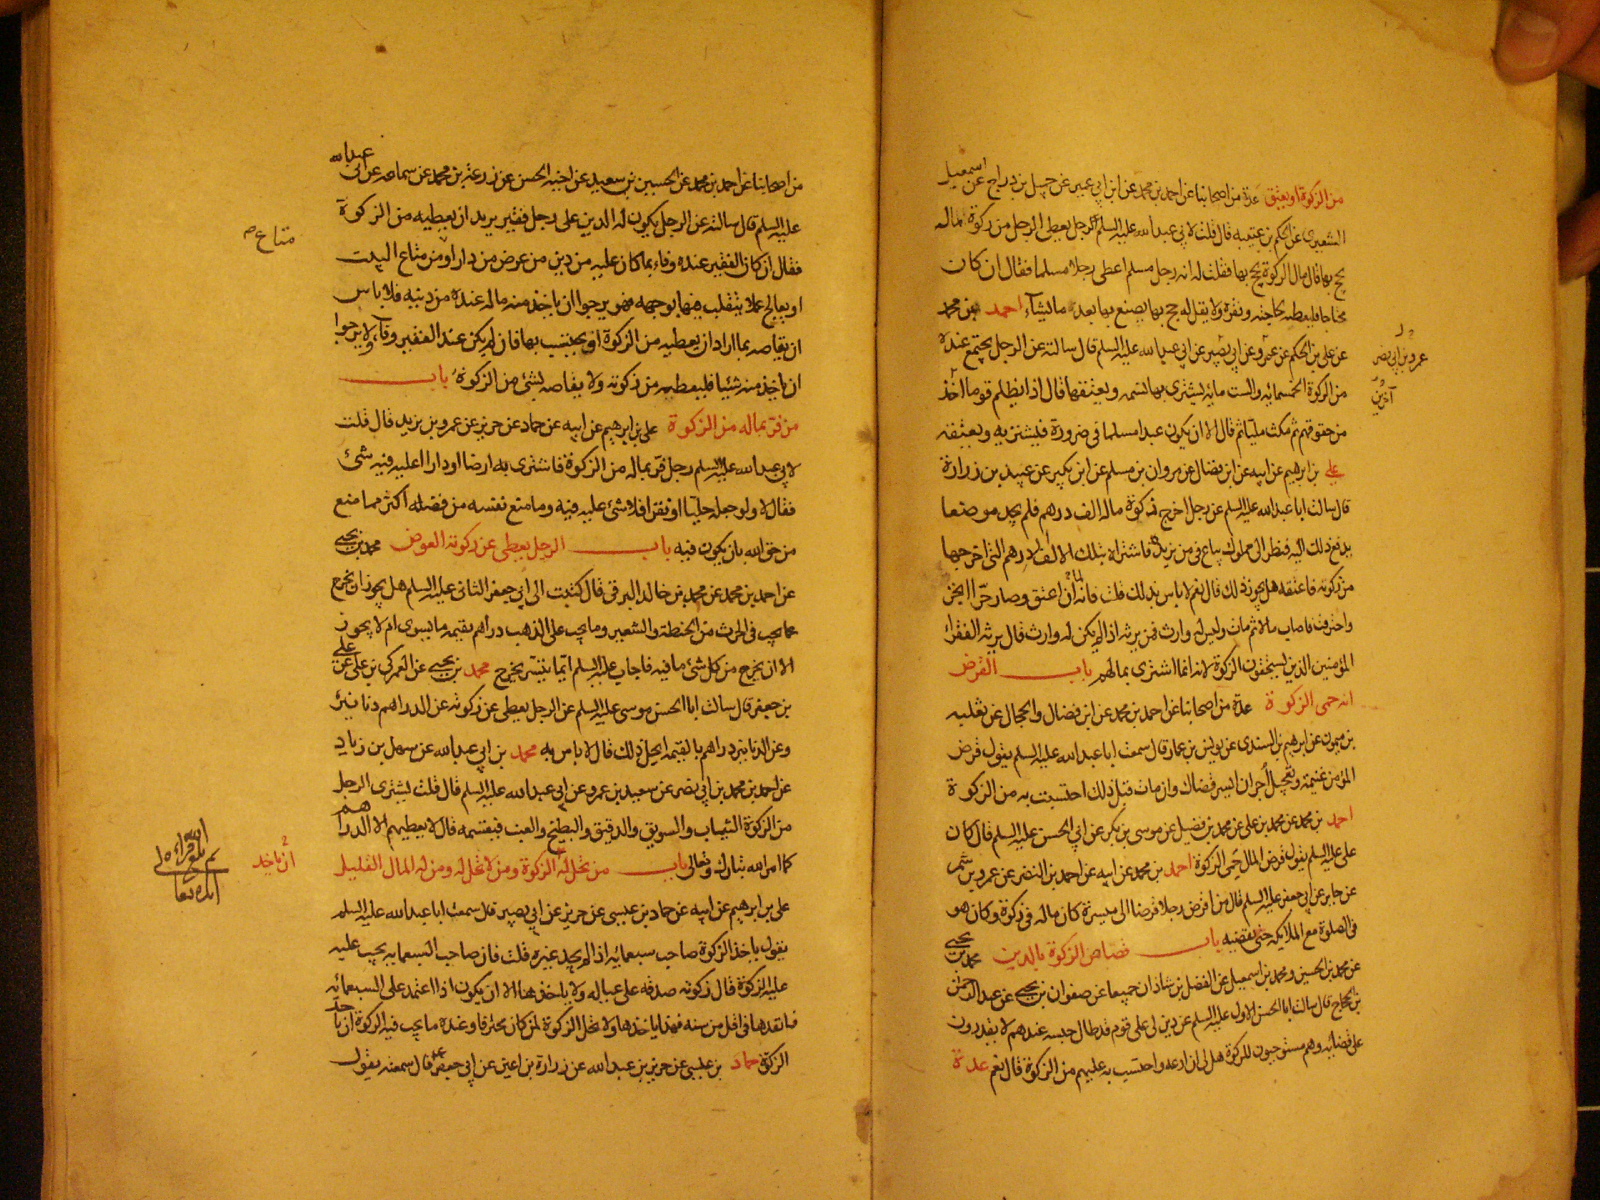 من الزكوة او يعتق عدة من اصحابنا عن احمد بن محمد عن ابن ابي عمير عن جميل بن دراج عن اسمعيل
الشعيرى عن الحكم بن عتيبه قال قلت لابي عبدالله عليه السلم الرجل يعطى الرجل من زكوة ماله
يحج بها قال مال الزكوة يحج بها فقلت له انه رجل مسلم اعطى رجلا مسلما فقال ان كان
محتاجا فليعطه لحاجته وفقره ولا يقل له حج بها يصنع بها بعد ما يشاء احمد بن محمد
عن على بن الحكم عن عمرو عن ابي بصير عن ابي عبدالله عليه السلم قال سالته عن الرجل يجتمع عنده
من الزكوة الخمسمايه والست مايه يشترى بها نسمه ويعتقها قال اذا يظلم قوما اخر
من حقوقهم ثم مكث مليا ثم قال الا ان يكون عبدا مسلما فى ضرورة فيشتريه ويعتقه
على بن ابرهيم عن ابيه عن ابن فضال عن مروان بن مسلم عن ابن بكير عن عبيد بن زرارة
قال سالت ابا عبدالله عليه السلم عن رجل اخرج زكوة ماله الف درهم فلم يجد موضعا
يدفع ذلك اليه فنظر الى مملوك يباع فى من يزيد فاشتراه بتلك الالف درهم التى اخرجها
من زكوته فاعتقه هل يجوز ذلك قال نعم لا باس بذلك قلت فانه لما ان اعتق وصار حرا اتجر
واحترف فاصاب مالا ثم مات وليس له وارث فمن يرثه اذا لم يكن له وارث قال يرثه الفقراء
المؤمنين الذين يستحقون الزكوة لانه انما اشترى بمالهم باب القرض
انه حمى الزكوة عدة من اصحابنا عن احمد بن محمد عن ابن فضال والحجال عن ثعلبه
بن ميمون عن ابرهيم بن السندى عن يونس بن عمار قال سمعت ابا عبدالله عليه السلم يقول قرض
المؤمن غنيمة وتعجيل اجر ان ايسر قضاك وان مات قبل ذلك احتسبت به من الزكوة
احمد بن محمد عن محمد بن على عن محمد بن فضيل عن موسى بن بكر عن ابي الحسن عليه السلم قال كان
على عليه السلم يقول قرض المال حمى الزكوة احمد بن محمد عن ابيه عن احمد بن النضر عن عمرو بن شمر
عن جابر عن ابي جعفر عليه السلم قال من اقرض رجلا قرضا الى ميسرة كان ماله فى زكوة وكان هو
فى الصلوة مع الملايكه حتى يقضيه باب قصاص الزكوة بالدين محمد بن يحيى
عن محمد بن الحسين ومحمد بن اسمعيل عن الفضل بن شاذان جميعا عن صفوان بن يحيى عن عبد الرحمن
بن الحجاج قال سالت ابا الحسن الاول عليه السلم عن دين لى على قوم قد طال حبسه عندهم لا يقدرون
على قضائه وهم مستوجبون للزكوة هل لى ان ادعه واحتسب به عليهم من الزكوة قال نعم عدة
عمرو بن ابي نصر
آخرين
من اصحابنا عن احمد بن محمد عن الحسين بن سعيد عن اخيه الحسن عن زرعة بن محمد عن سماعه عن ابي عبدالله
عليه السلم قال سالته عن الرجل يكون له الدين على رجل فقير يريد ان يعطيه من الزكوة
فقال ان كان الفقير عنده وفاء بما كان عليه من دين من عرض من دار او من متاع البيت
او يعالج عملا يتقلب فيها بوجهه فهو يرجوا ان ياخذ منه ماله عنده من دينه فلا باس
ان يقاصه بما اراد ان يعطيه من الزكوة او يحتسب بها فان لم يكن عند الفقير وفاء ولا يرجوا
ان ياخذ منه شيئا فليعطيه من زكوته ولا يقاصه بشئ من الزكوة باب
من فر بماله من الزكوة على بن ابرهيم عن ابيه عن حماد عن حريز عن عمرو بن يزيد قال قلت
لابي عبدالله عليه السلم رجل فر بماله من الزكوة فاشترى به ارضا او دارا اعليه فيه شئ
فقال لا ولو جعله حليا او نقرا فلا شئ عليه فيه وما منع نفسه من فضله اكثر مما منع
من حق الله بان يكون فيه باب الرجل يعطى عن زكوته العوض محمد بن يحيى
عن احمد بن محمد عن محمد بن خالد البرقى قال كتبت الى ابي جعفر الثانى عليه السلم هل يجوز ان يخرج
عما يجب فى الحرث من الحنطة والشعير وما يجب على الذهب دراهم بقيمه ما يسوى ام لا يجوز
الا ان يخرج من كل شئ ما فيه فاجاب عليه السلم ايما تيسر يخرج محمد بن يحيى عن العمركى بن على عن على
بن جعفر قال سالت ابا الحسن موسى عليه السلم عن الرجل يعطى عن زكوته عن الدراهم دنانير
وعن الدنانير دراهم بالقيمه ايحل ذلك قال لا باس به محمد بن ابي عبدالله عن سهل بن زياد
عن احمد بن محمد بن ابي نصر عن سعيد بن عمرو عن ابي عبدالله عليه السلم قال قلت يشترى الرجل
من الزكوة الثياب والسويق والدقيق والبطيخ والعنب فيقسمه قال لا يعطيهم الا الدراهم
كما امر الله تبارك وتعالى باب من تحل له الزكوة ومن لا تحل له ومن له المال القليل
على بن ابرهيم عن ابيه عن حماد بن عيسى عن حريز عن ابي بصير قال سمعت ابا عبدالله عليه السلم
يقول ياخذ الزكوة صاحب سبعمايه اذا لم يجد غيره قلت فان صاحب السبعمايه يجب عليه
عليه الزكوة قال زكوته صدقه على عياله ولا ياخذها الا ان يكون اذا اعتمد على السبعمائه
انفدها فى اقل من سنه فهذا ياخذها ولا تحل الزكوة لمن كان محترفا وعنده ما يجب فيه الزكوة ان ياخذ
الزكوة حماد بن عيسى عن حريز بن عبدالله عن زرارة بن اعين عن ابي جعفر قال سمعته يقول
متاع
ان ياخذ